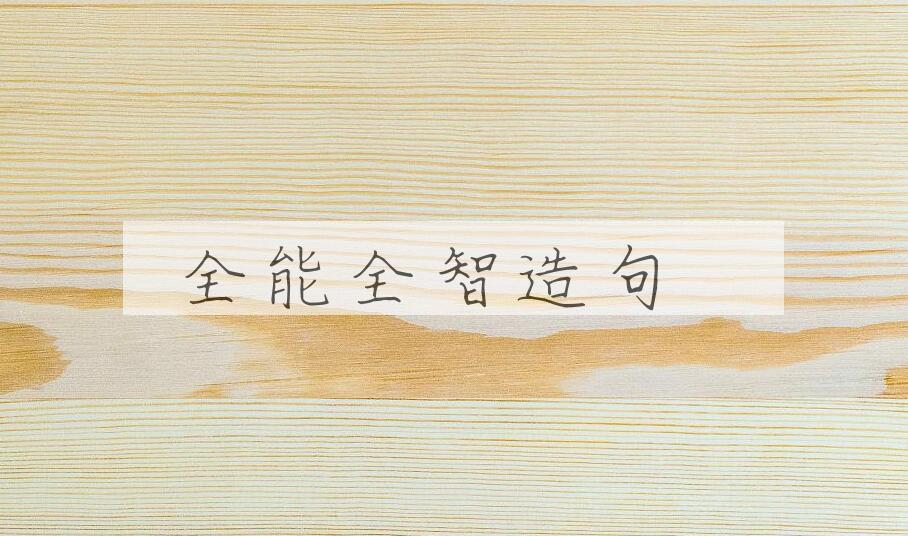 全能全智造句